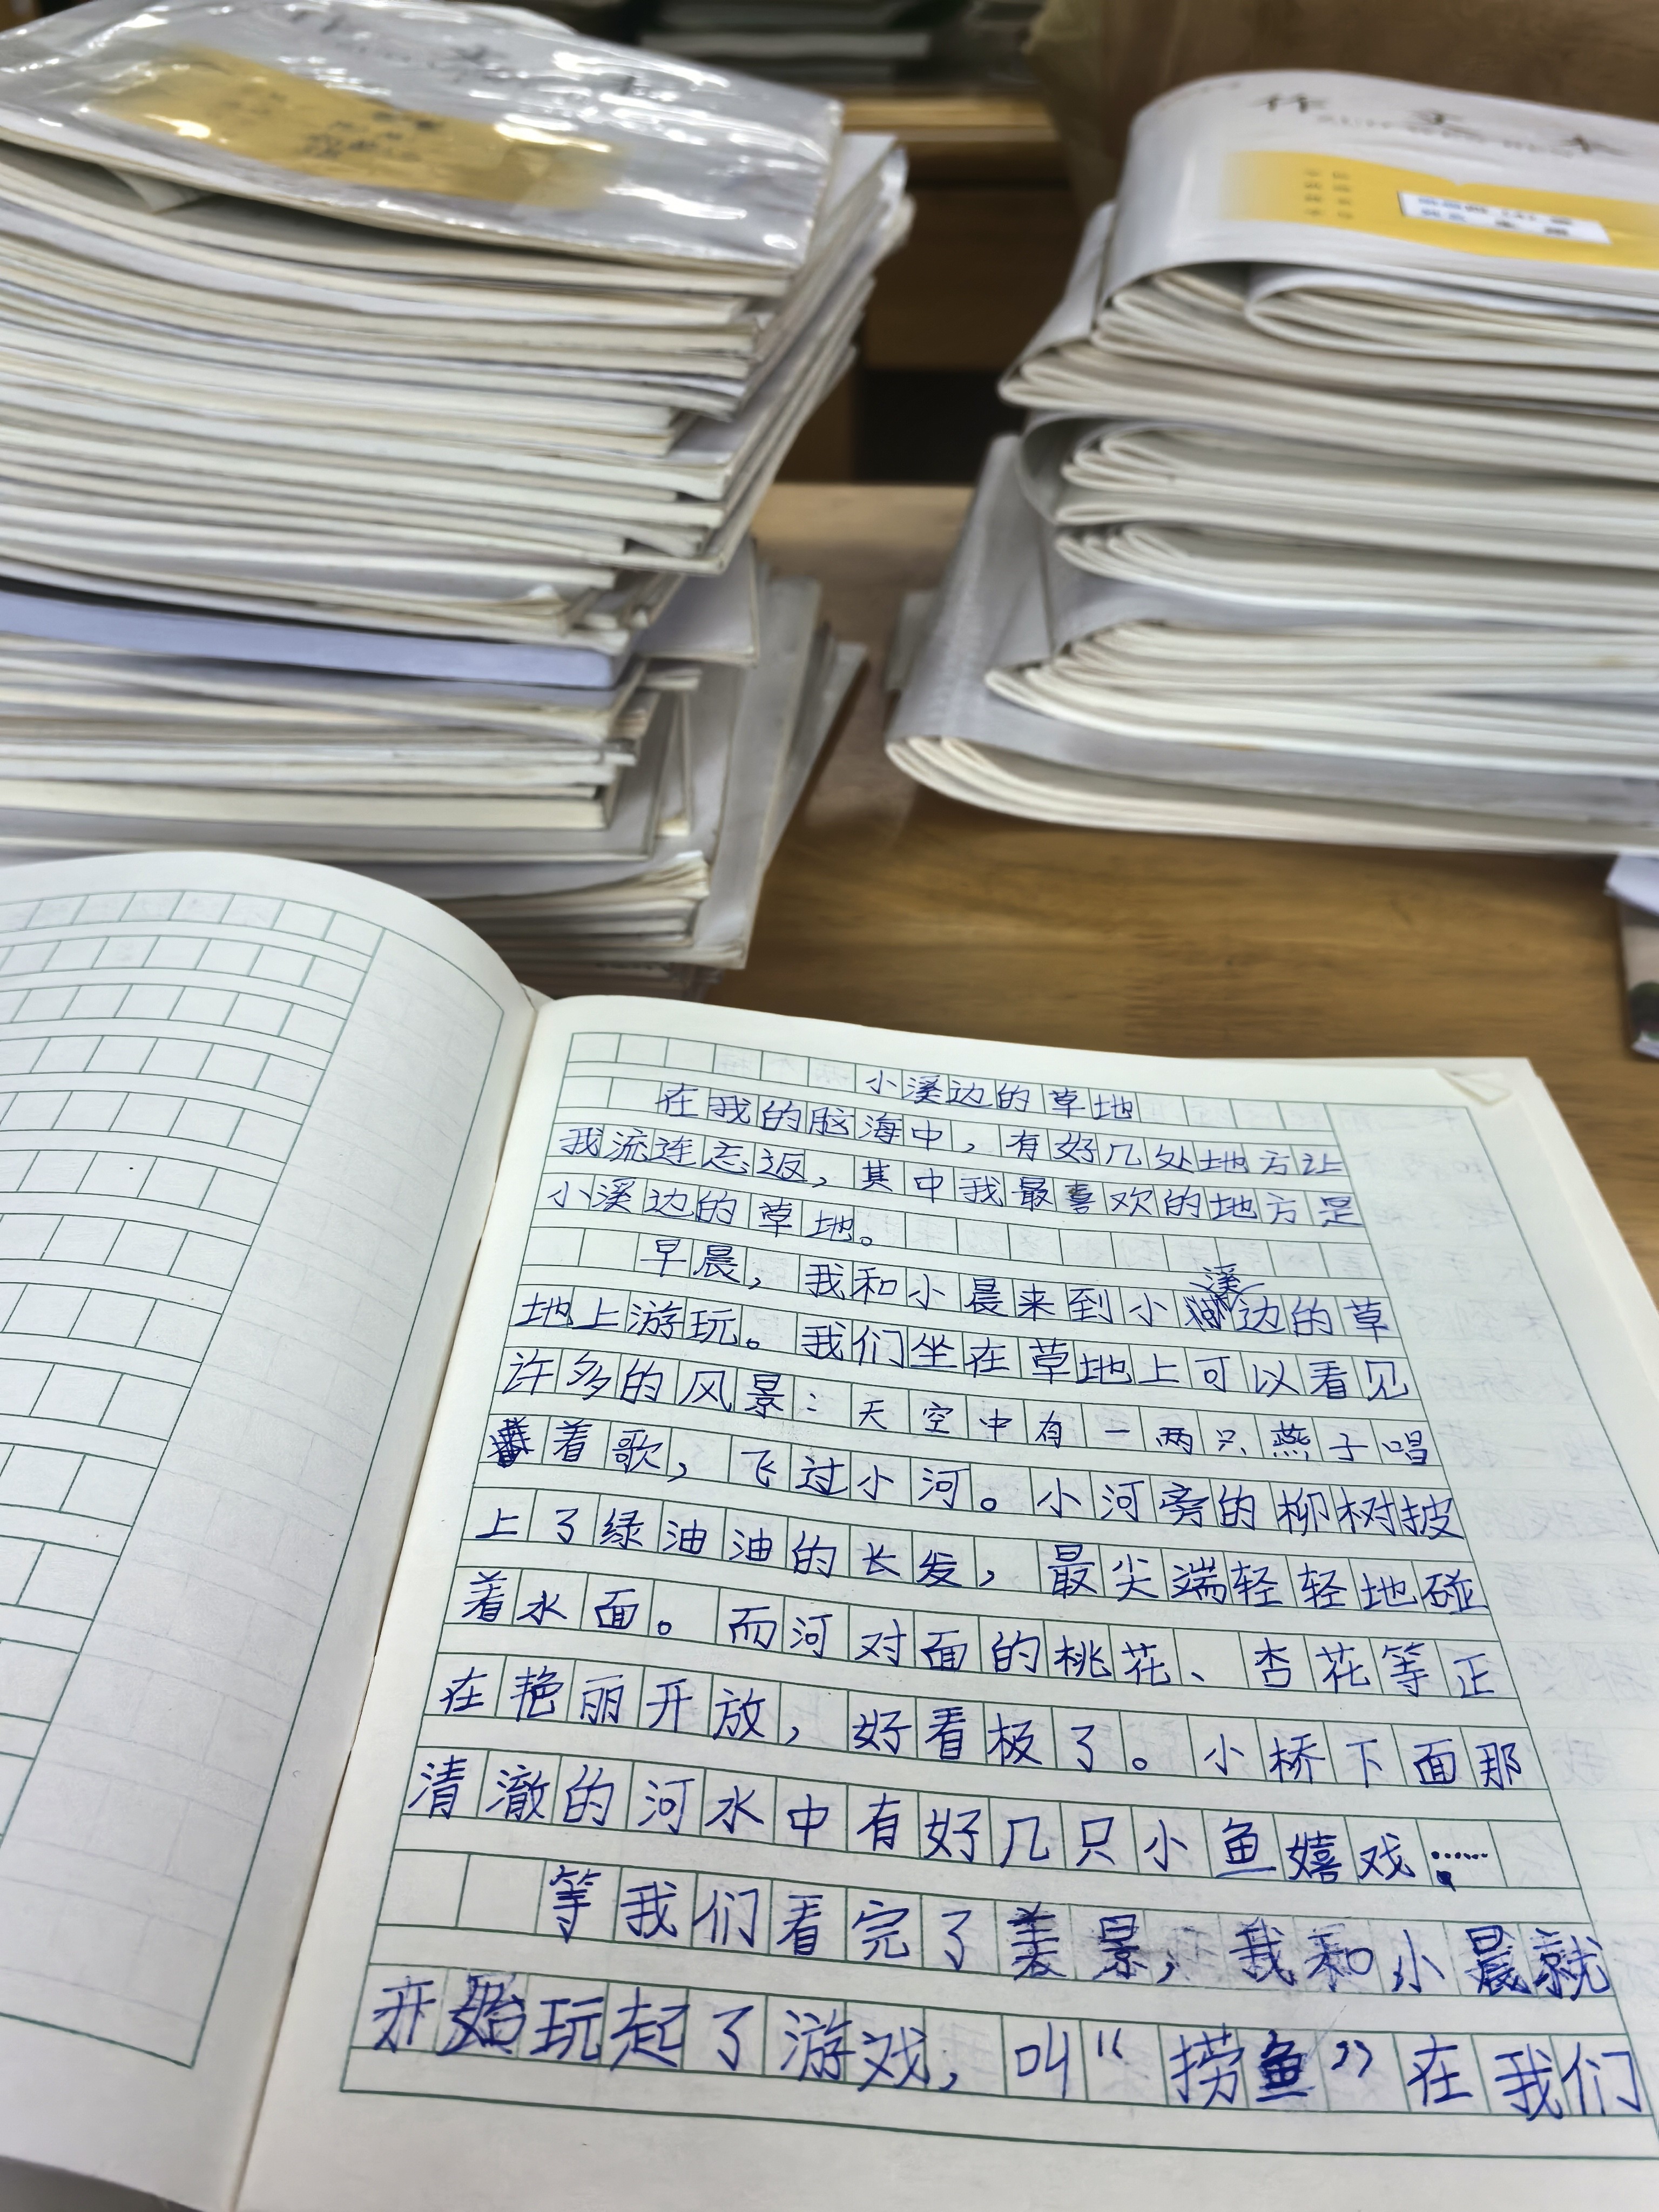 作文本
小溪边的草地
在我的脑海中，有好几处地方让
我流连忘返，其中我最喜欢的地方是
小溪边的草地。
早晨，我和小晨来到小溪边的草
地上游玩。我们坐在草地上可以看见
许多的风景：天空中有一两只燕子唱
着歌，飞过小河。小河旁的柳树披
上了绿油油的长发，最尖端轻轻地碰
着水面。而河对面的桃花、杏花等正
在艳丽开放，好看极了。小桥下面那
清澈的河水中有好几只小鱼嬉戏……
等我们看完了美景，我和小晨就
开始玩起了游戏，叫“捞鱼”在我们